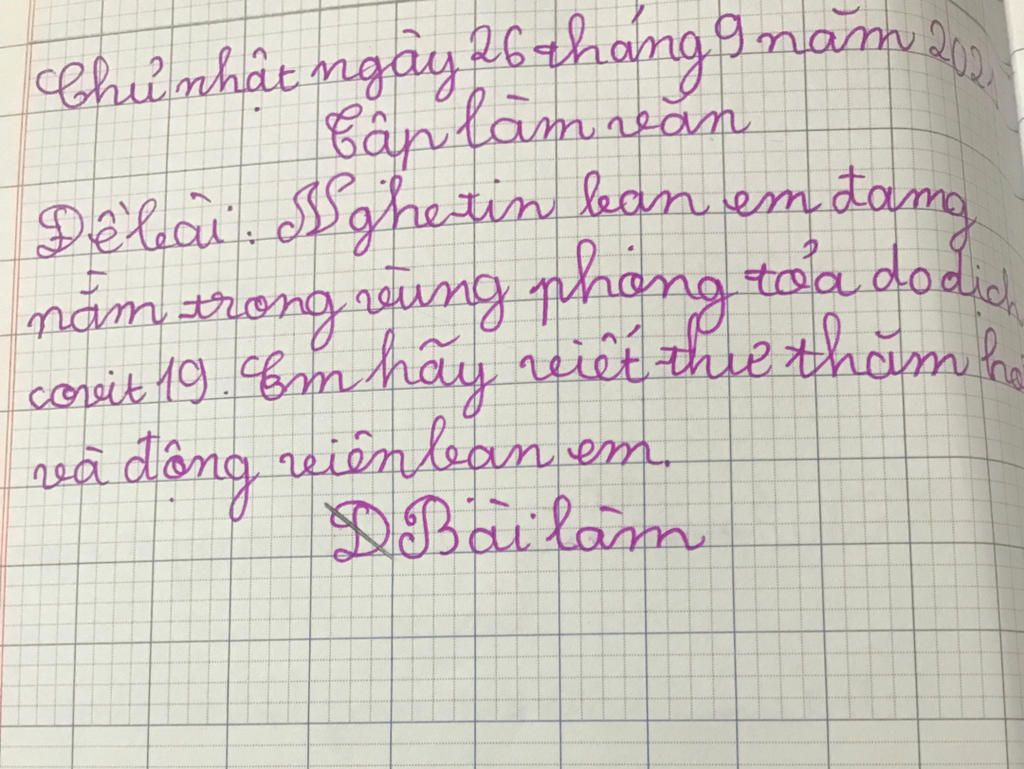 Chủ nhật ngày 26 tháng 9 năm 202
Tập làm văn
Đề bài: Nghe tin bạn em đang
nằm trong vùng phong tỏa do dịch
covit 19. Em hãy viết thư thăm hỏ
và động viên bạn em.
Bài làm